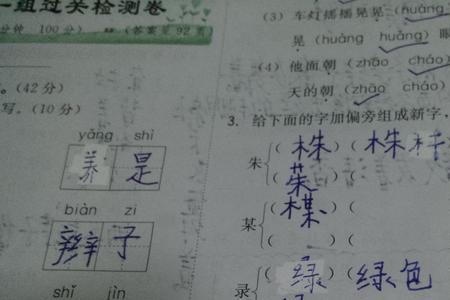 一组过关检测卷
分钟 100分) (答案见92页
。(42分)
写。(10分)
yǎng shì
养 是
biàn zi
辫 子
shǐ jìn
(3) 车灯摇摇晃晃(huǎng
晃(huàng huǎng)眼
(4) 他面朝(zhāo cháo)
天的朝(zhāo cháo)
3. 给下面的字加偏旁组成新字,
朱 (株)(株杆
(茱
某 (楳)(
( )(
录 (绿)(绿色